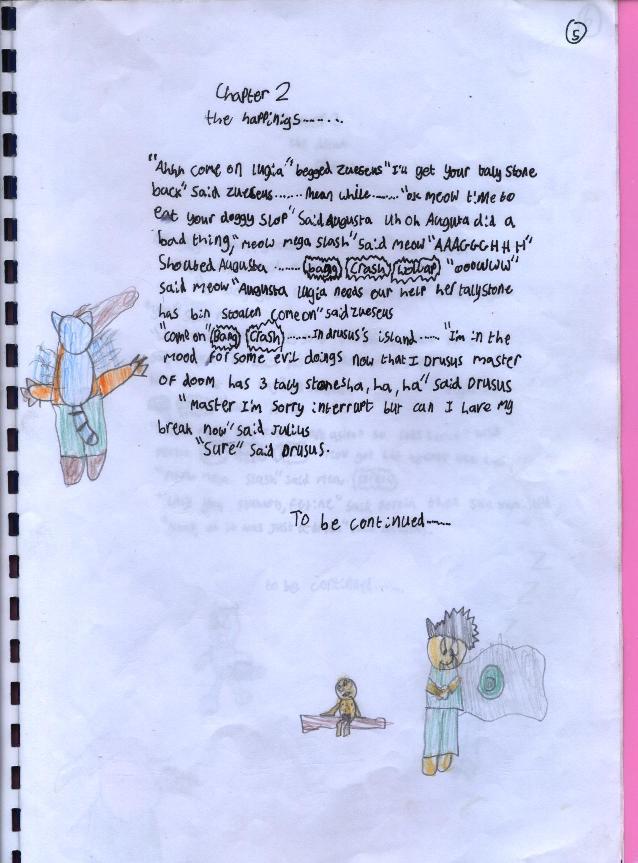 5
Chapter 2
the happinigs.......
"Ahhh come on lugia" begged zueseus "I'll get your taly stone
back" said zueseus....... mean while....... "ok meow time to
eat your doggy slop" said Augusta uh oh Augusta did a
bad thing, "meow mega slash" said meow "AAAGGGHHH"
Shouted Augusta ....... bang Crash wollap "oooWWW"
said meow "Augusta lugia needs our help her talystone
has bin stoalen come on" said zueseus
"come on" Bang Crash .......In drusus's island ..... "I'm in the
mood for some evil doings now that I Drusus master
of doom has 3 taly stonesha, ha, ha" said Drusus
"Master I'm sorry interrupt but can I have my
break now" said Julius
"Sure" said Drusus.
To be continued.......